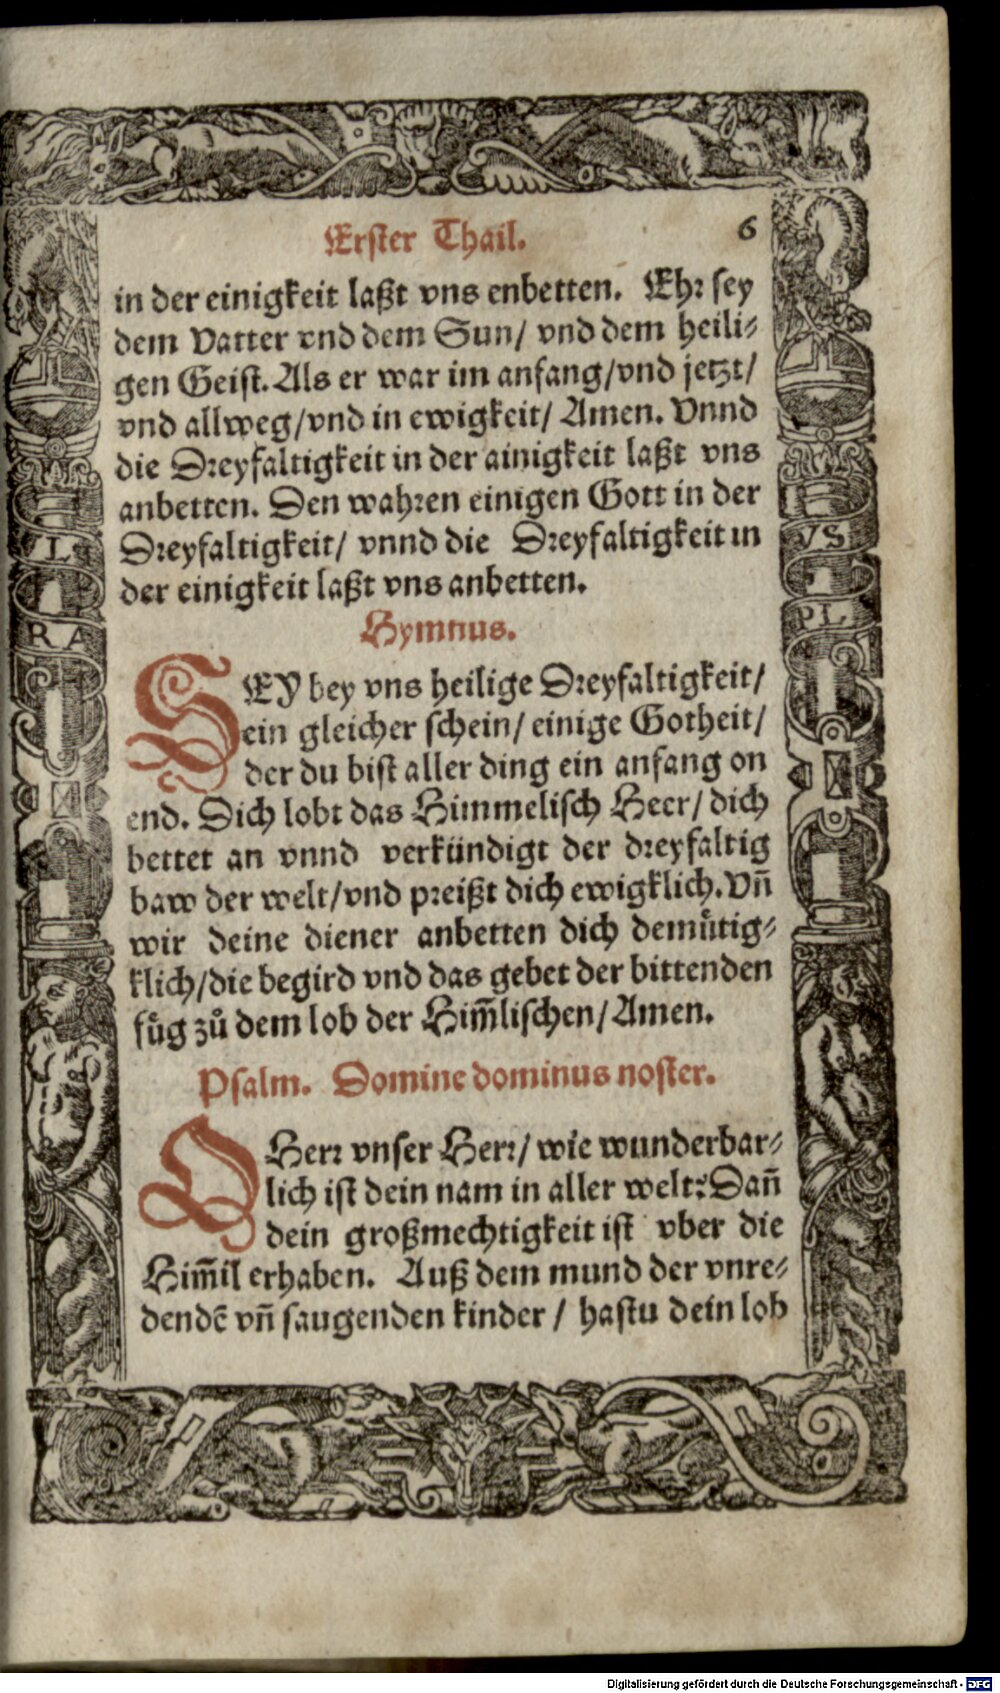 Erster Thail. 6
in der einigkeit laßt vns enbetten. Ehr sey
dem Vatter vnd dem Sun/ vnd dem heili-
gen Geist. Als er war im anfang/vnd jetzt/
vnd allweg/vnd in ewigkeit/ Amen. Vnnd
die Dreyfaltigkeit in der ainigkeit laßt vns
anbetten. Den wahren einigen Gott in der
Dreyfaltigkeit/ vnnd die Dreyfaltigkeit in
der einigkeit laßt vns anbetten.
Hymnus.
SEY bey vns heilige Dreyfaltigkeit/
ein gleicher schein/ einige Gotheit/
der du bist aller ding ein anfang on
end. Dich lobt das Himmelisch Heer/ dich
bettet an vnnd verkündigt der dreyfaltig
baw der welt/vnd preißt dich ewigklich. Vñ
wir deine diener anbetten dich demuͤtig-
klich/die begird vnd das gebet der bittenden
fuͤg zuͦ dem lob der Him̃lischen/ Amen.
Psalm. Domine dominus noster.
O Herr vnser Herr/ wie wunderbar-
lich ist dein nam in aller welt? Dañ
dein großmechtigkeit ist vber die
Him̃il erhaben. Auß dem mund der vnre-
dendẽ vñ saugenden kinder / hastu dein lob
L
RA
VS
PL
Digitalisierung gefördert durch die Deutsche Forschungsgemeinschaft - DFG